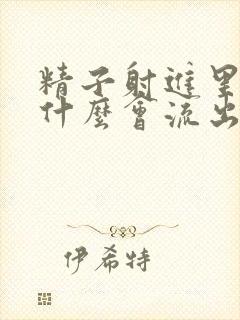 精子射進
什麼會流出
伊希特